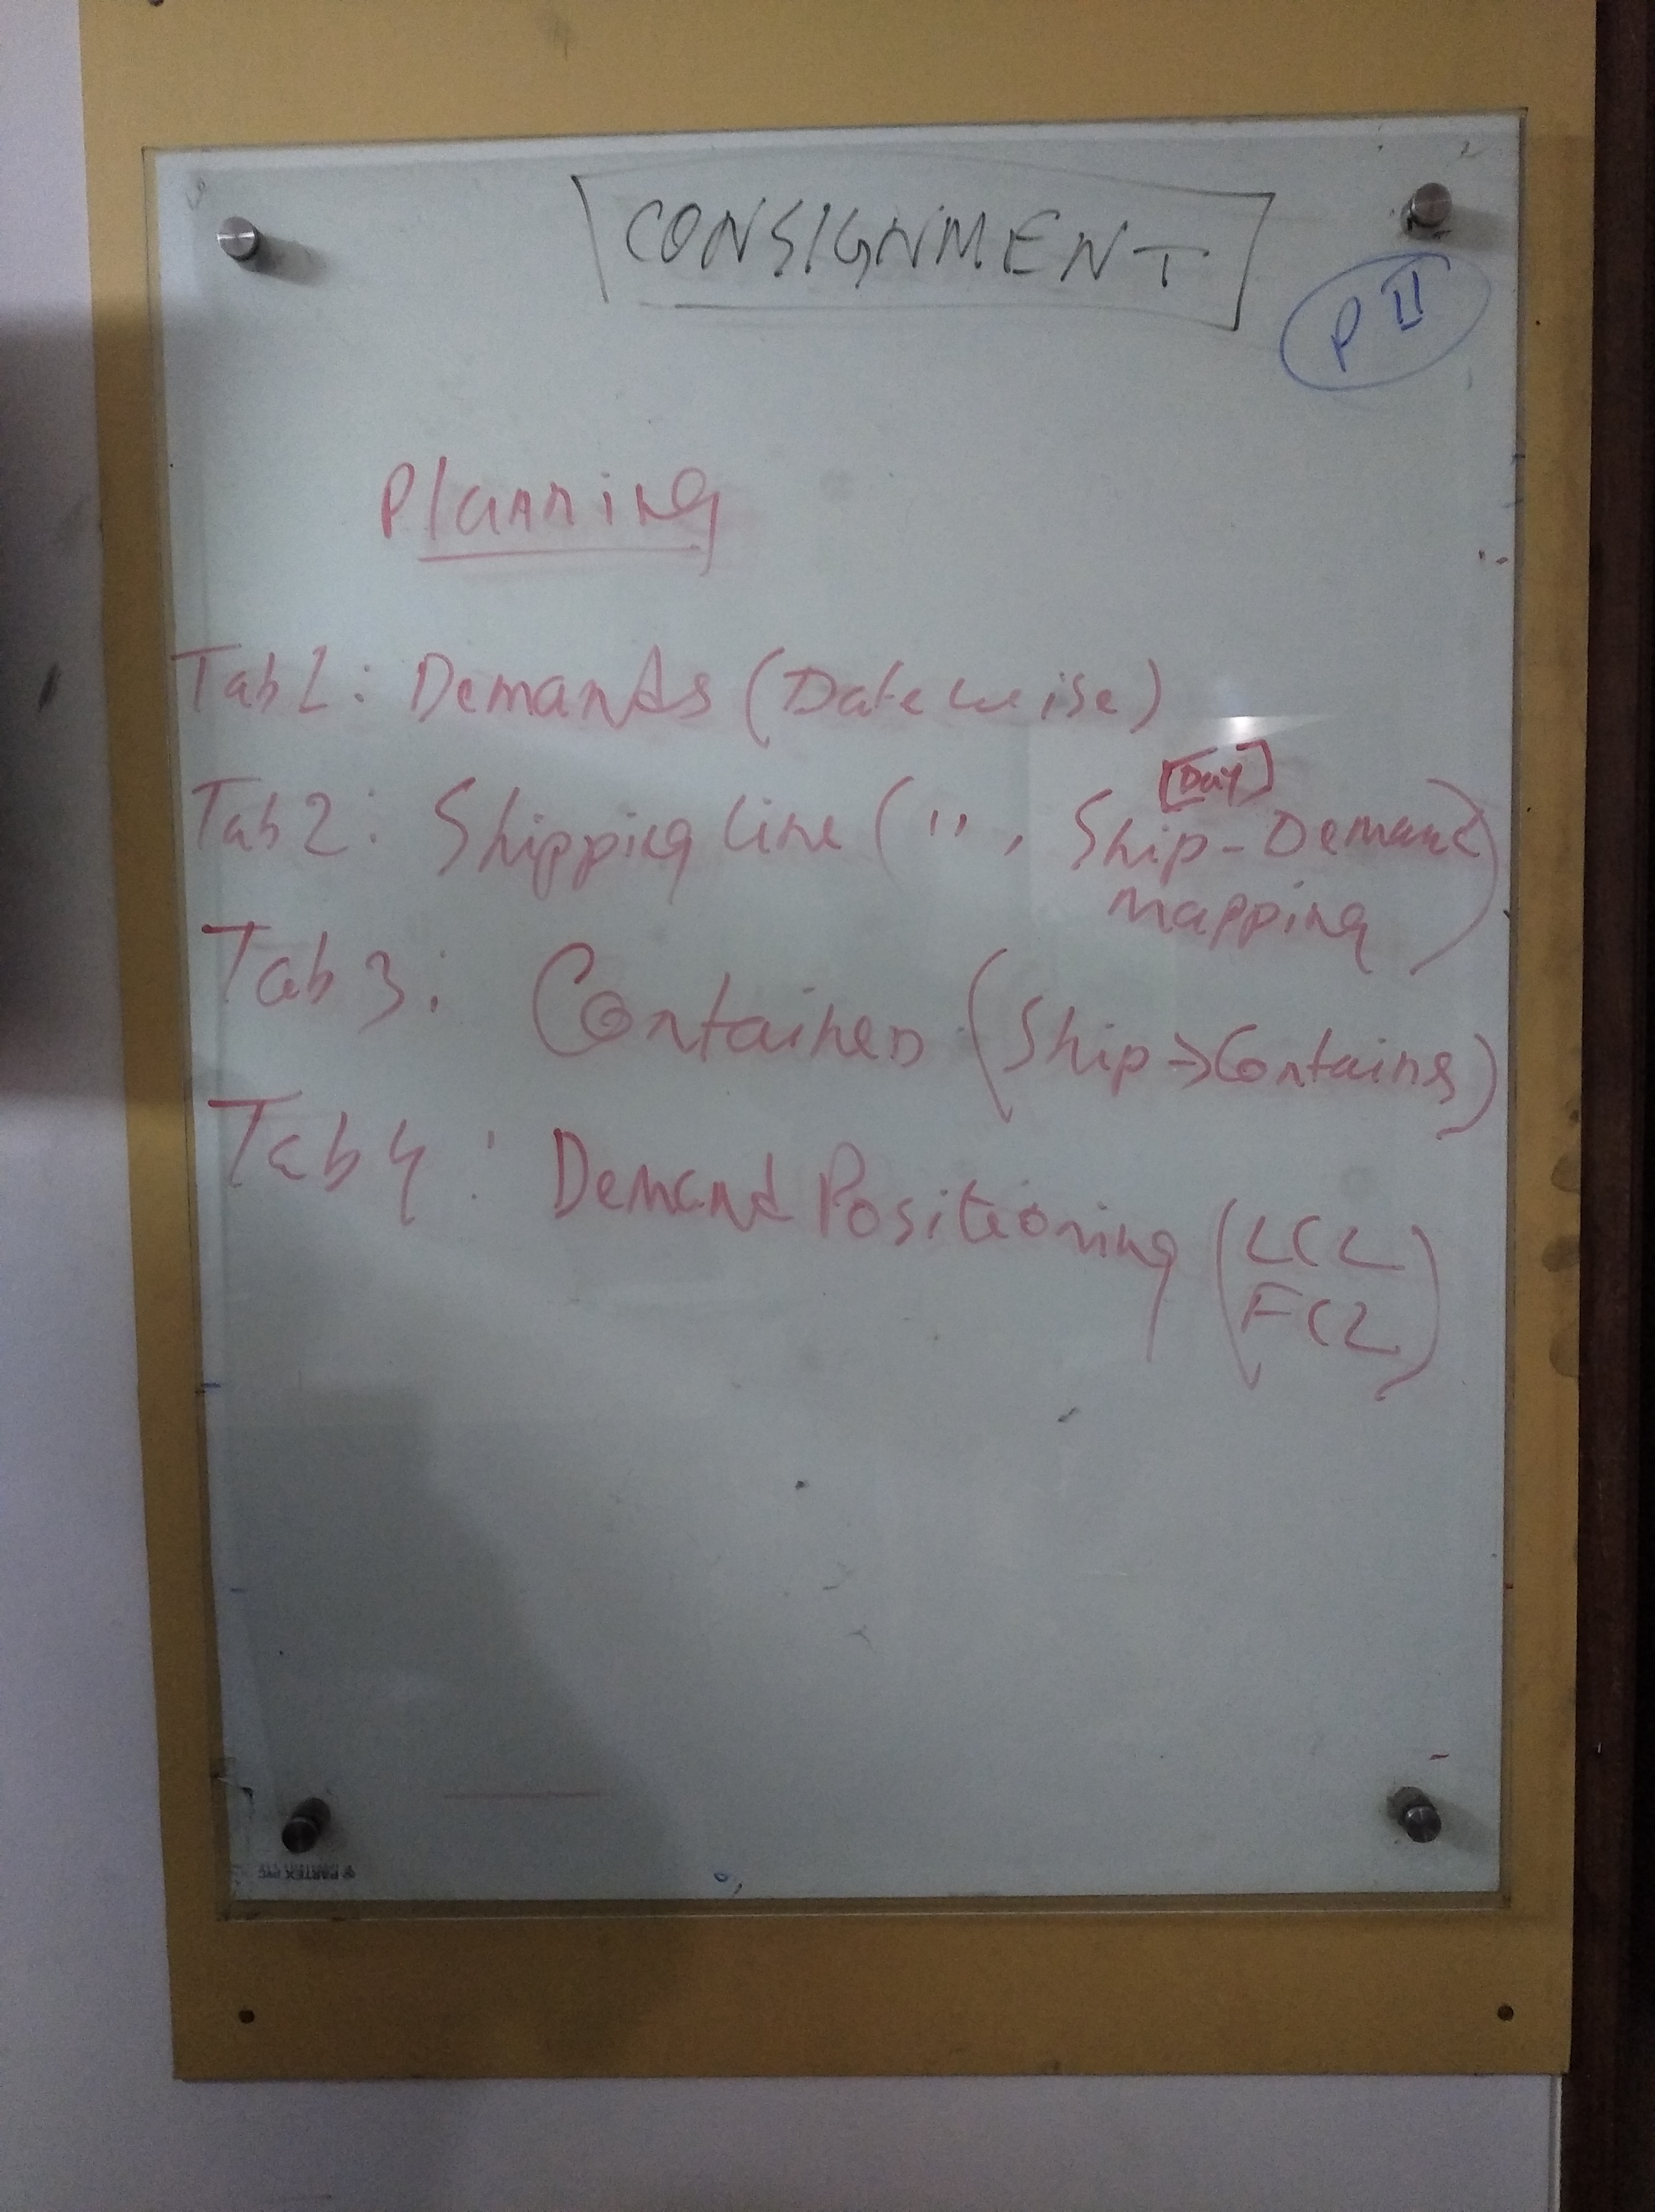 CONSIGNMENT
P II
Planning
Tab 1: Demands (Date wise)
[Day]
Tab 2: Shipping Line ( " , Ship-Demand
mapping)
Tab 3: Container (Ship → Contains)
Tab 4: Demand Positioning (LCL
FCL)